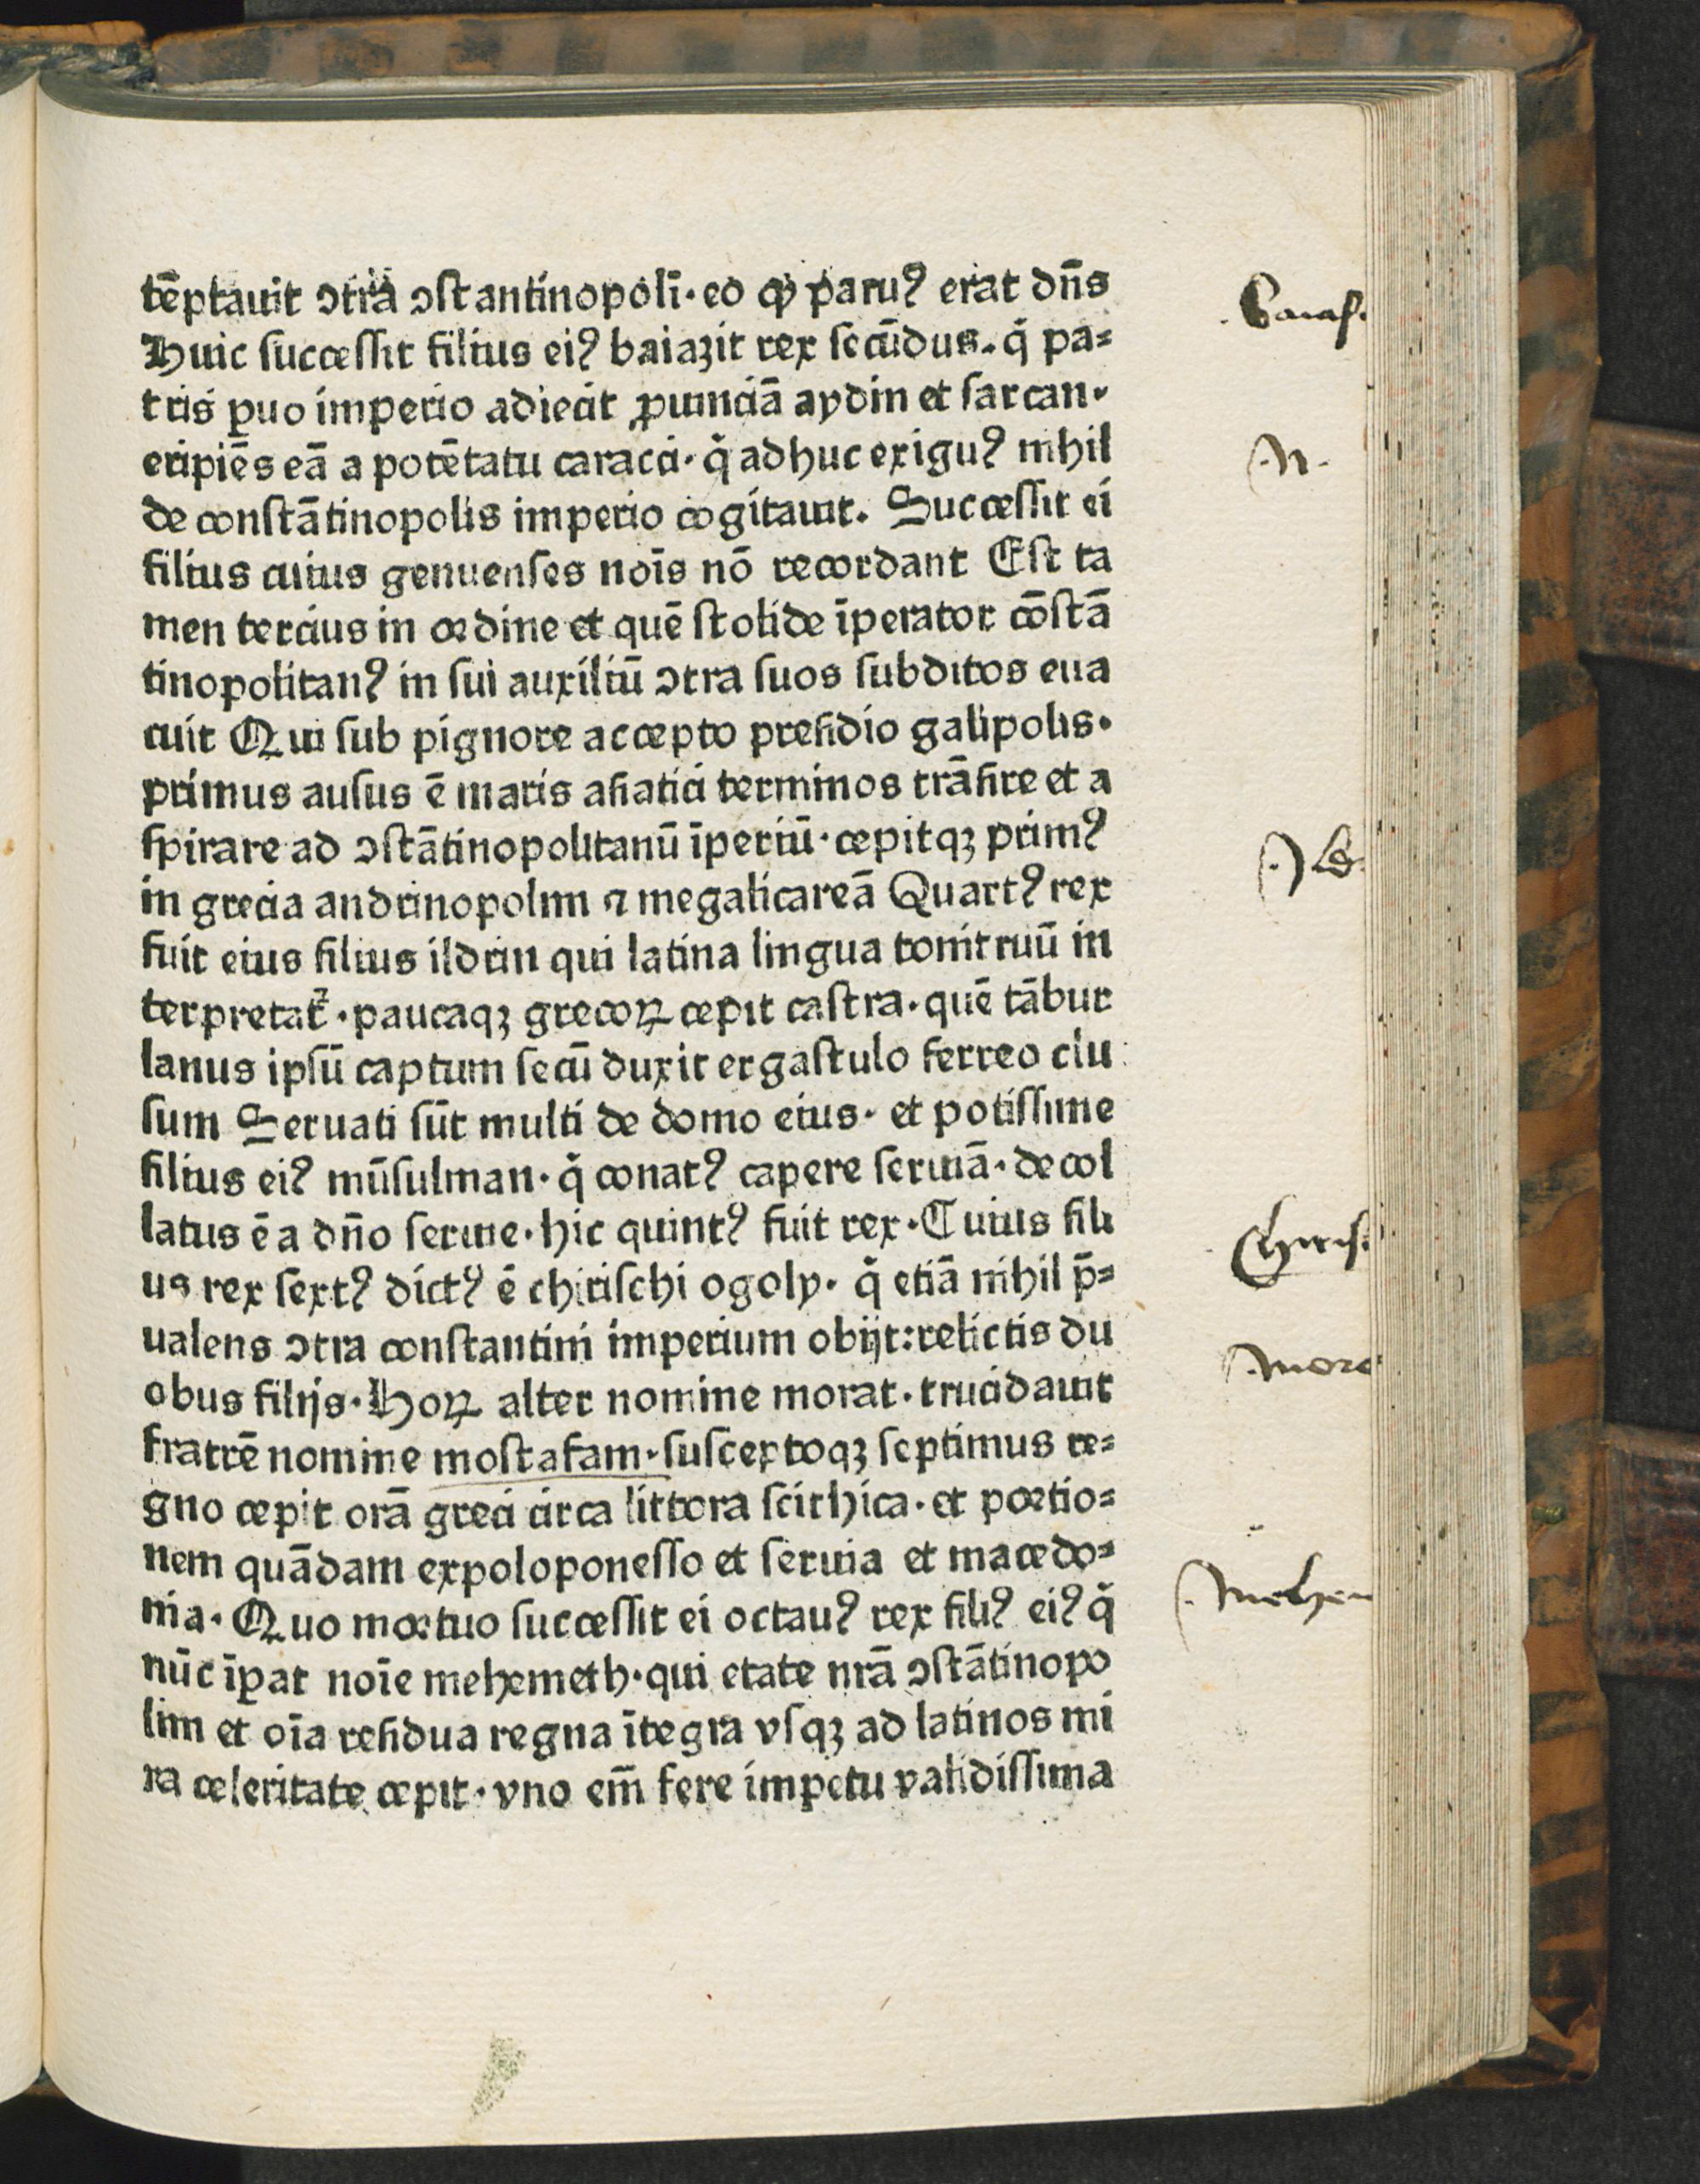 tēptauit ɔtra ɔstantinopolī· eo ꝙ paruꝰ erat dn̄s
Huic successit filius eiꝰ baiazit rex secūdus. q̇ pa⸗
tris ꝑuo imperio adiecit ꝓuinciā aydin et sarcan·
eripiēs eā a potētatu caraci· q̇ adhuc exiguꝰ nihil
de constātinopolis imperio cogitauit. Successit ei
filius cuius genuenses nōis nō recordant Est ta
men tercius in ordine et quē stolide īperator cōstā
tinopolitanꝰ in sui auxiliū ɔtra suos subditos eua
cuit Qui sub pignore accepto presidio galipolis·
primus ausus ē maris asiatici terminos trāsire et a
spirare ad ɔstātinopolitanū īperiū· cepitqꝫ primꝰ
in grecia andrinopolim ⁊ megalicareā Quartꝰ rex
fuit eius filius ildrin qui latina lingua tonitruū in
terpretat᷑· paucaqꝫ grecoꝝ cepit castra. quē tābur
lanus ipsū captum secū duxit ergastulo ferreo clu
sum Seruati sūt multi de domo eius· et potissime
filius eiꝰ mūsulman· q̇ conatꝰ capere seruiā· decol
latus ē a dn̄o seruie· hic quintꝰ fuit rex· Cuius fili
us rex sextꝰ dictꝰ ē chirischi ogoly· q̇ etiā nihil p̄⸗
ualens ɔtra constantini imperium obijt: relictis du
obus filijs· Hoꝝ alter nomine morat. trucidauit
fratrē nomine mostafam· susceptoqꝫ septimus re⸗
gno cepit orā greci circa littora scithica· et portio⸗
nem quādam expoloponesso et seruia et macedo⸗
nia· Quo mortuo successit ei octauꝰ rex filiꝰ eiꝰ q̇
nūc īꝑat noīe mehemeth· qui etate nr̄a ɔstātinopo
lim et oīa residua regna ītegra vsqꝫ ad latinos mi
ra celeritate cepit· vno em̄ fere impetu validissima